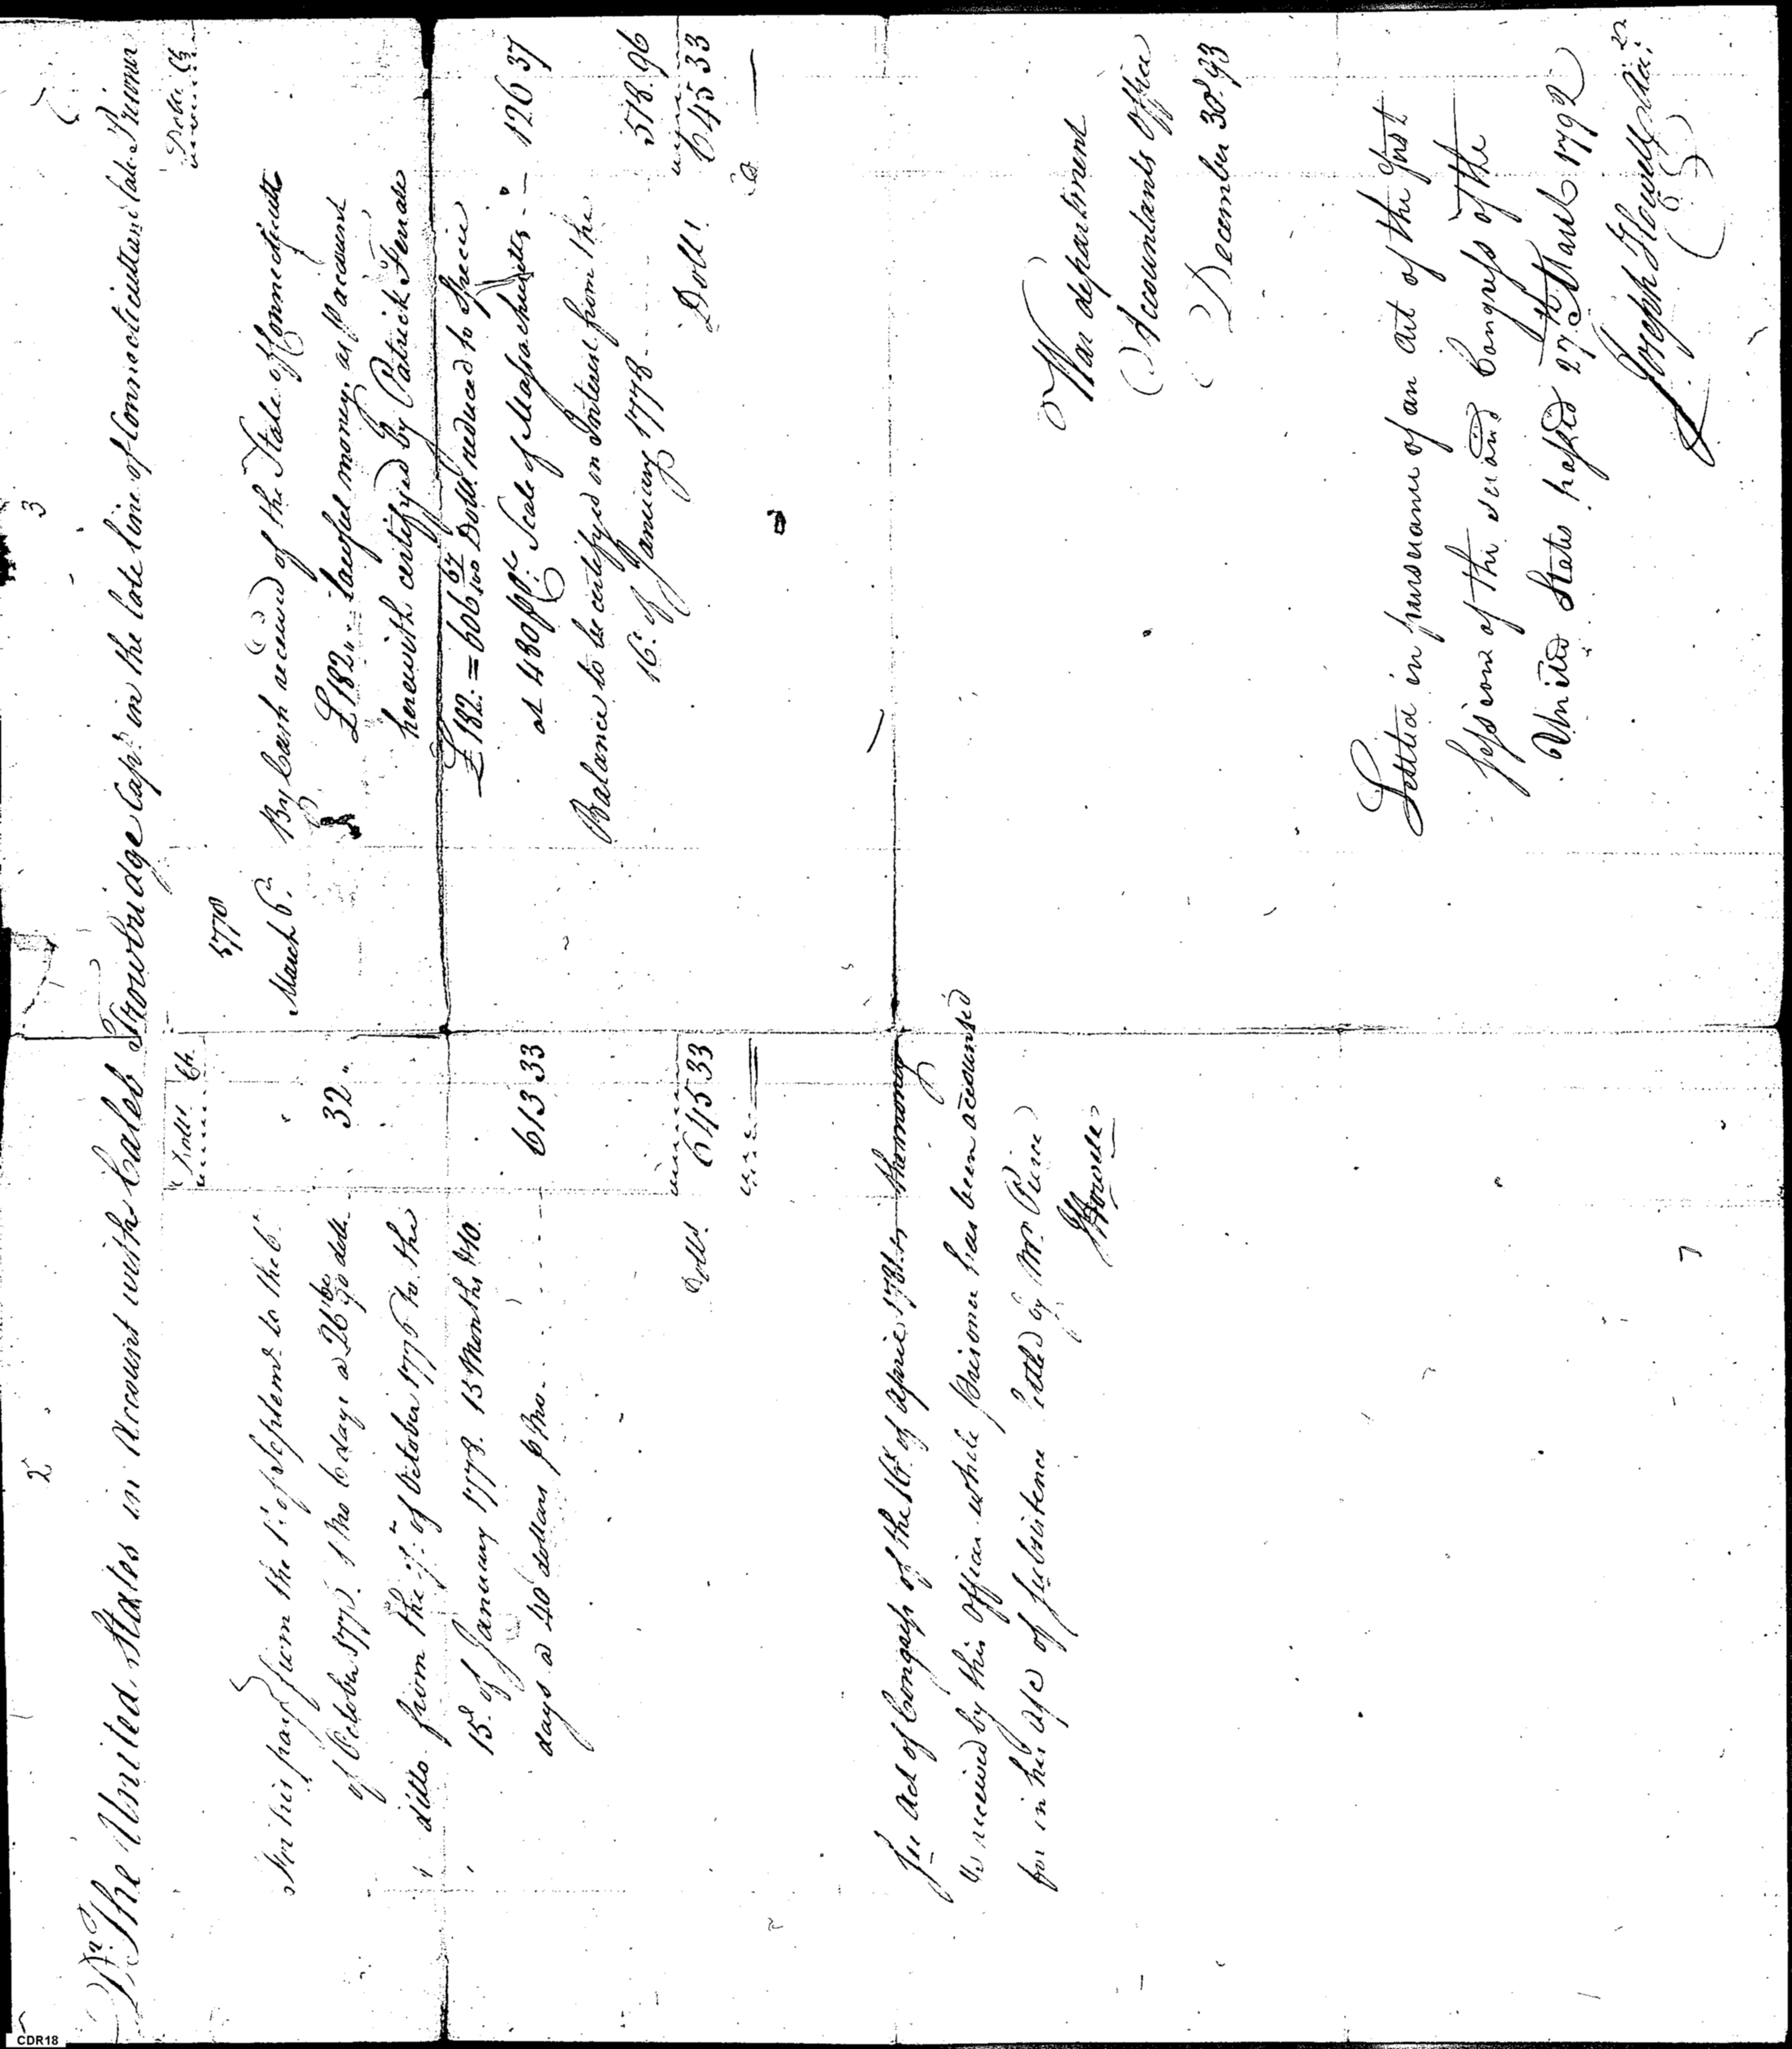 2
3
Dr. The United States in Account with Caleb Trowbridge Capt. in the late line of Connecticut and late Prisoner
Dolls. Cts.
For his pay from the 1st of September to the 6th
of October 1776. 1 Mo 6 days a 26 60/90 dolls. 32 "
ditto from the 7th of October 1776 to the
15th of January 1778. 15 Months & 10
days a 40 dollars p Mo. 613 33
Dolls. 645 33
In Act of Congress of the of April 1781 the money
received by this Officer while prisoner has been accounted
for in his a/c of subsistence settled by Mr. Pierce
JHowell
Dolls. Cts.
1778
March 6th. By Cash received of the State of Connecticut
£182 " lawful money as p account
herewith certifyed by Patrick Ferrale
£182. = 606 67/100 Dolls. reduced to Specie
at 480 p Ct. Scale of Massachusetts. 126 37
Balance to be certifyed on Interest from the
16th of January 1778 518.96
Dolls. 645 33
War department
Accountants Office
December 30th. 93
Settled in pursuance of an act of the first
session of the second Congress of the
United States passed 27th March 1792
Joseph Howell
CDR18